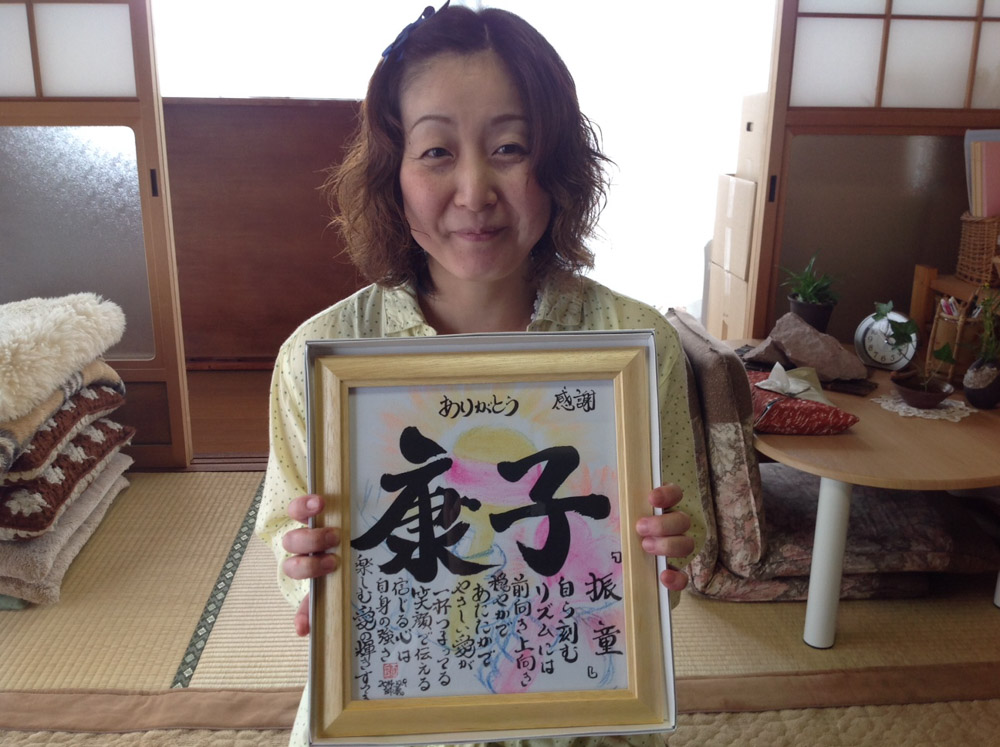 ありがとう 感謝
康子
『振童』
自ら刻む
リズムには
前向き上向き
穏やかで
あたたかで
やさしい愛が
一杯つまってる
笑顔で伝える
信じる心は
自身の強さ
楽しむ愛の輝きすっ